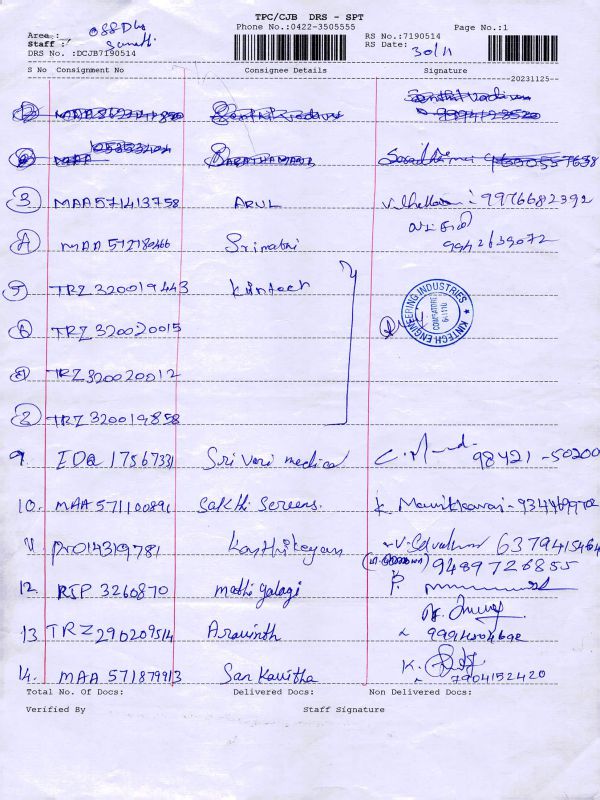 TPC/CJB DRS - SPT
Phone No.:0422-3505555 Page No.:1
Area :
Staff : Sumathi
RS No.:7190514
RS Date: 30/11
DRS No. :DCJB7190514
S No Consignment No Consignee Details Signature
20231125
3 MAA571413758 ARUL 9976682392
4 MAA 572180466 Srimathi 9942639072
5 TRZ 320019443 Kintech
KINTECH ENGINEERING INDUSTRIES
COIMBATORE
6 TRZ 320020015
7 TRZ 320020012
8 TRZ 320019858
9. IDQ 17567331 Sri Vari medical 98421-50200
10. MAA 571100891 Sakthi Screens. K. Manikkavai-
11 PRO14319781 Karthikeyan 6379415464
9489726855
12. RJP 3260870 mathi yalagi P.
13. TRZ 290209514 Aravinth
14. MAA 571879913 San Kavitha K.
7904152420
Total No. Of Docs: Delivered Docs: Non Delivered Docs:
Verified By Staff Signature